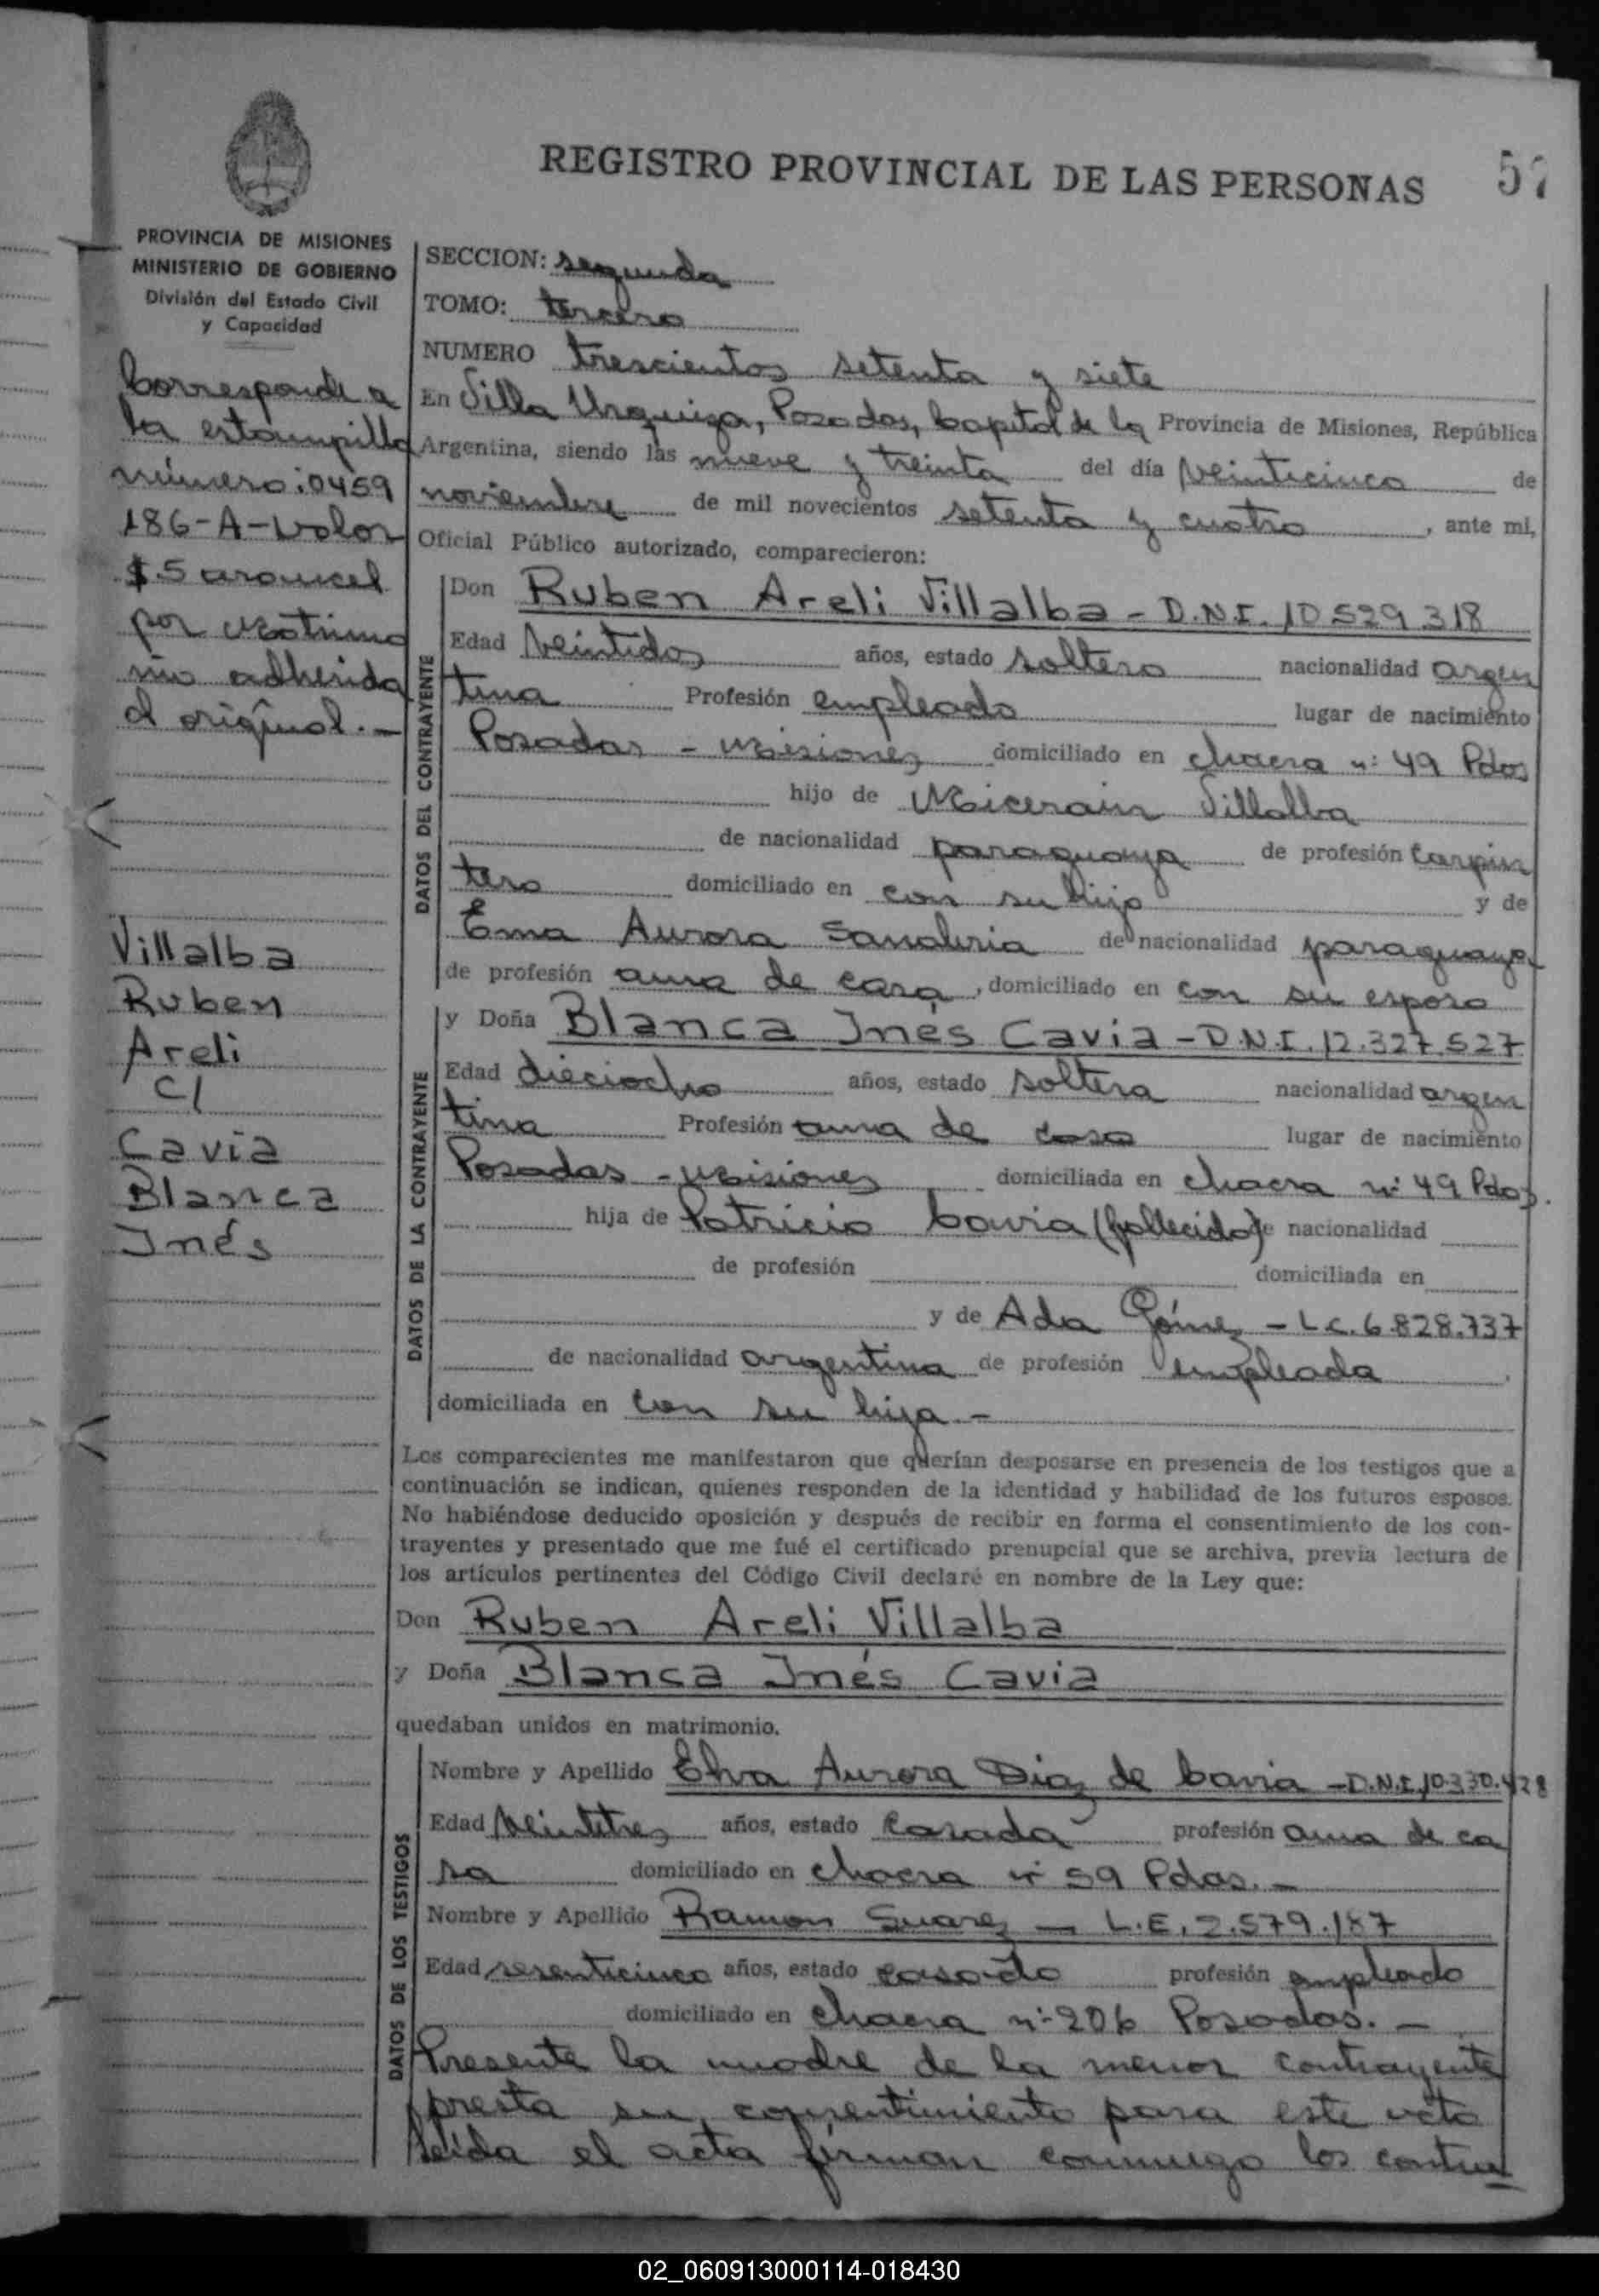 REGISTRO PROVINCIAL DE LAS PERSONAS
PROVINCIA DE MISIONES
MINISTERIO DE GOBIERNO
División del Estado Civil
y Capacidad
Corresponde a
la estampilla
número: 0459
186-A-valor
$.5 arancel
por matrimo
nio adherida
al original.-
Villalba
Ruben
Areli
C/
Cavia
Blanca
Inés
SECCION: segunda
TOMO: tercero
NUMERO trescientos setenta y siete
En Villa Urquiza, Posadas, Capital de la Provincia de Misiones, República
Argentina, siendo las nueve y treinta del día veinticinco de
noviembre de mil novecientos setenta y cuatro, ante mi,
Oficial Público autorizado, comparecieron:
DATOS DEL CONTRAYENTE
Don Ruben Areli Villalba - D.N.I. 10.529.318
Edad veintidos años, estado soltero nacionalidad argen
tina Profesión empleado lugar de nacimiento
Posadas - Misiones domiciliado en chacra n: 49 Pdas
hijo de Villalba
de nacionalidad paraguaya de profesión carpin
tero domiciliado en con su hijo y de
Ema Aurora Sanabria de nacionalidad paraguaya
de profesión ama de casa, domiciliado en con su esposo
DATOS DE LA CONTRAYENTE
y Doña Blanca Inés Cavia - D.N.I. 12.327.527
Edad dieciocho años, estado soltera nacionalidad argen
tina Profesión ama de casa lugar de nacimiento
Posadas - Misiones domiciliada en chacra n: 49 Pdas.
hija de Patricio Cavia (fallecido) de nacionalidad
de profesión domiciliada en
y de Ada Gómez - L.C. 6.828.737
de nacionalidad argentina de profesión empleada
domiciliada en con su hija -
Los comparecientes me manifestaron que querían desposarse en presencia de los testigos que a
continuación se indican, quienes responden de la identidad y habilidad de los futuros esposos.
No habiéndose deducido oposición y después de recibir en forma el consentimiento de los con-
trayentes y presentado que me fué el certificado prenupcial que se archiva, previa lectura de
los artículos pertinentes del Código Civil declaré en nombre de la Ley que:
Don Ruben Areli Villalba
y Doña Blanca Inés Cavia
quedaban unidos en matrimonio.
DATOS DE LOS TESTIGOS
Nombre y Apellido Elva Aurora Diaz de Cavia - D.N.I. 10.330.428
Edad veintitres años, estado casada profesión ama de ca
sa domiciliado en chacra n: 59 Pdas. -
Nombre y Apellido Ramon Suarez - L.E. 2.579.187
Edad sesenticinco años, estado casado profesión empleado
domiciliado en chacra n: 206 Posadas. -
Presente la madre de la menor contrayente
presta su consentimiento para este acto
leida el acta firman conmigo los contra
02_060913000114-018430